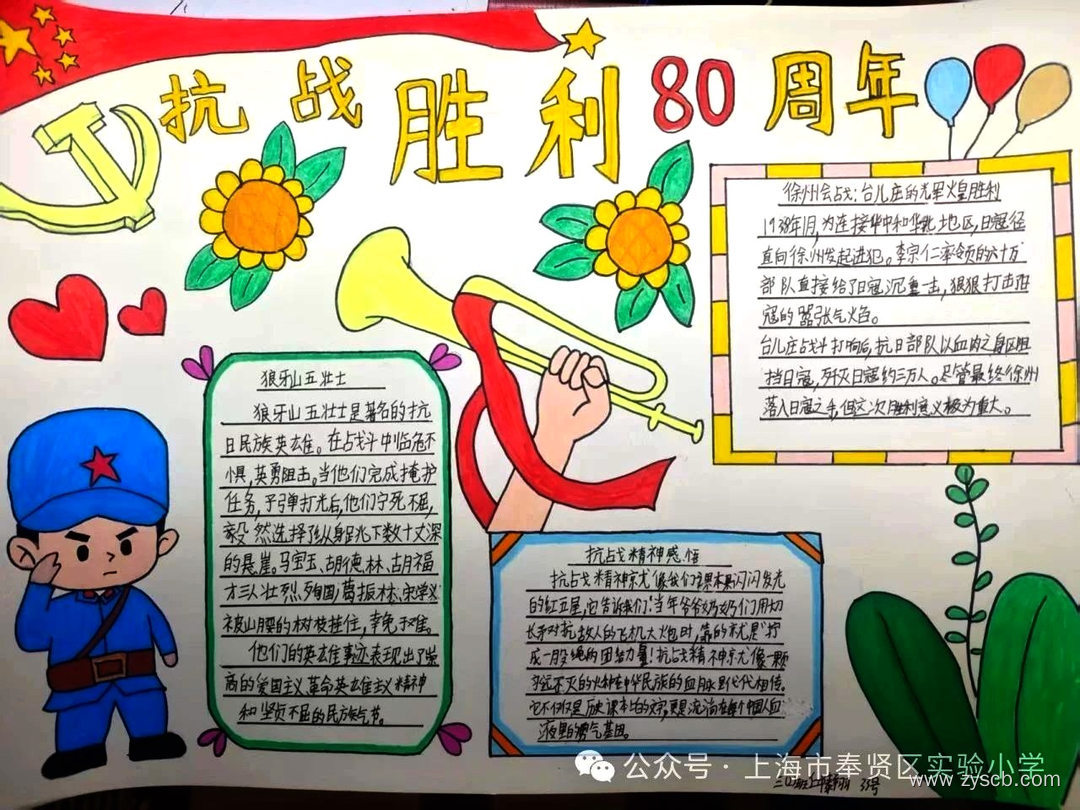 抗战胜利80周年
狼牙山五壮士
狼牙山五壮士是著名的抗
日民族英雄。在战斗中临危不
惧,英勇阻击。当他们完成掩护
任务,子弹打光后,他们宁死不屈,
毅然选择了纵身跳下数十丈深
的悬崖。马宝玉、胡德林、胡福
才三人壮烈殉国,葛振林、宋学义
被山腰的树枝挂住,幸免于难。
他们的英雄事迹表现出了崇
高的爱国主义、革命英雄主义精神
和坚贞不屈的民族气节。
徐州会战:台儿庄的光辉胜利
1938年1月,为连接华中和华北地区,日寇径
直向徐州发起进犯。李宗仁率领的六十万
部队直接给了日寇沉重一击,狠狠打击日
寇的嚣张气焰。
台儿庄战斗打响后,抗日部队以血肉之身区阻
挡日寇,歼灭日寇约三万人。尽管最终徐州
落入日寇之手,但这次胜利意义极为重大。
抗战精神感悟
抗战精神就像我们课本里闪闪发光
的红五星,它告诉我们:当年爷爷奶奶们用
长矛对抗敌人的飞机大炮时,靠的就是"拧
成一股绳的团结力量!抗战精神就像一颗
永远不灭的火种在中华民族的血脉里代代相传。
它不仅仅是历史课本上的文字,更是流淌在每个中国人血
液里的勇气基因。
公众号·上海市奉贤区实验小学
www.zyscb.com